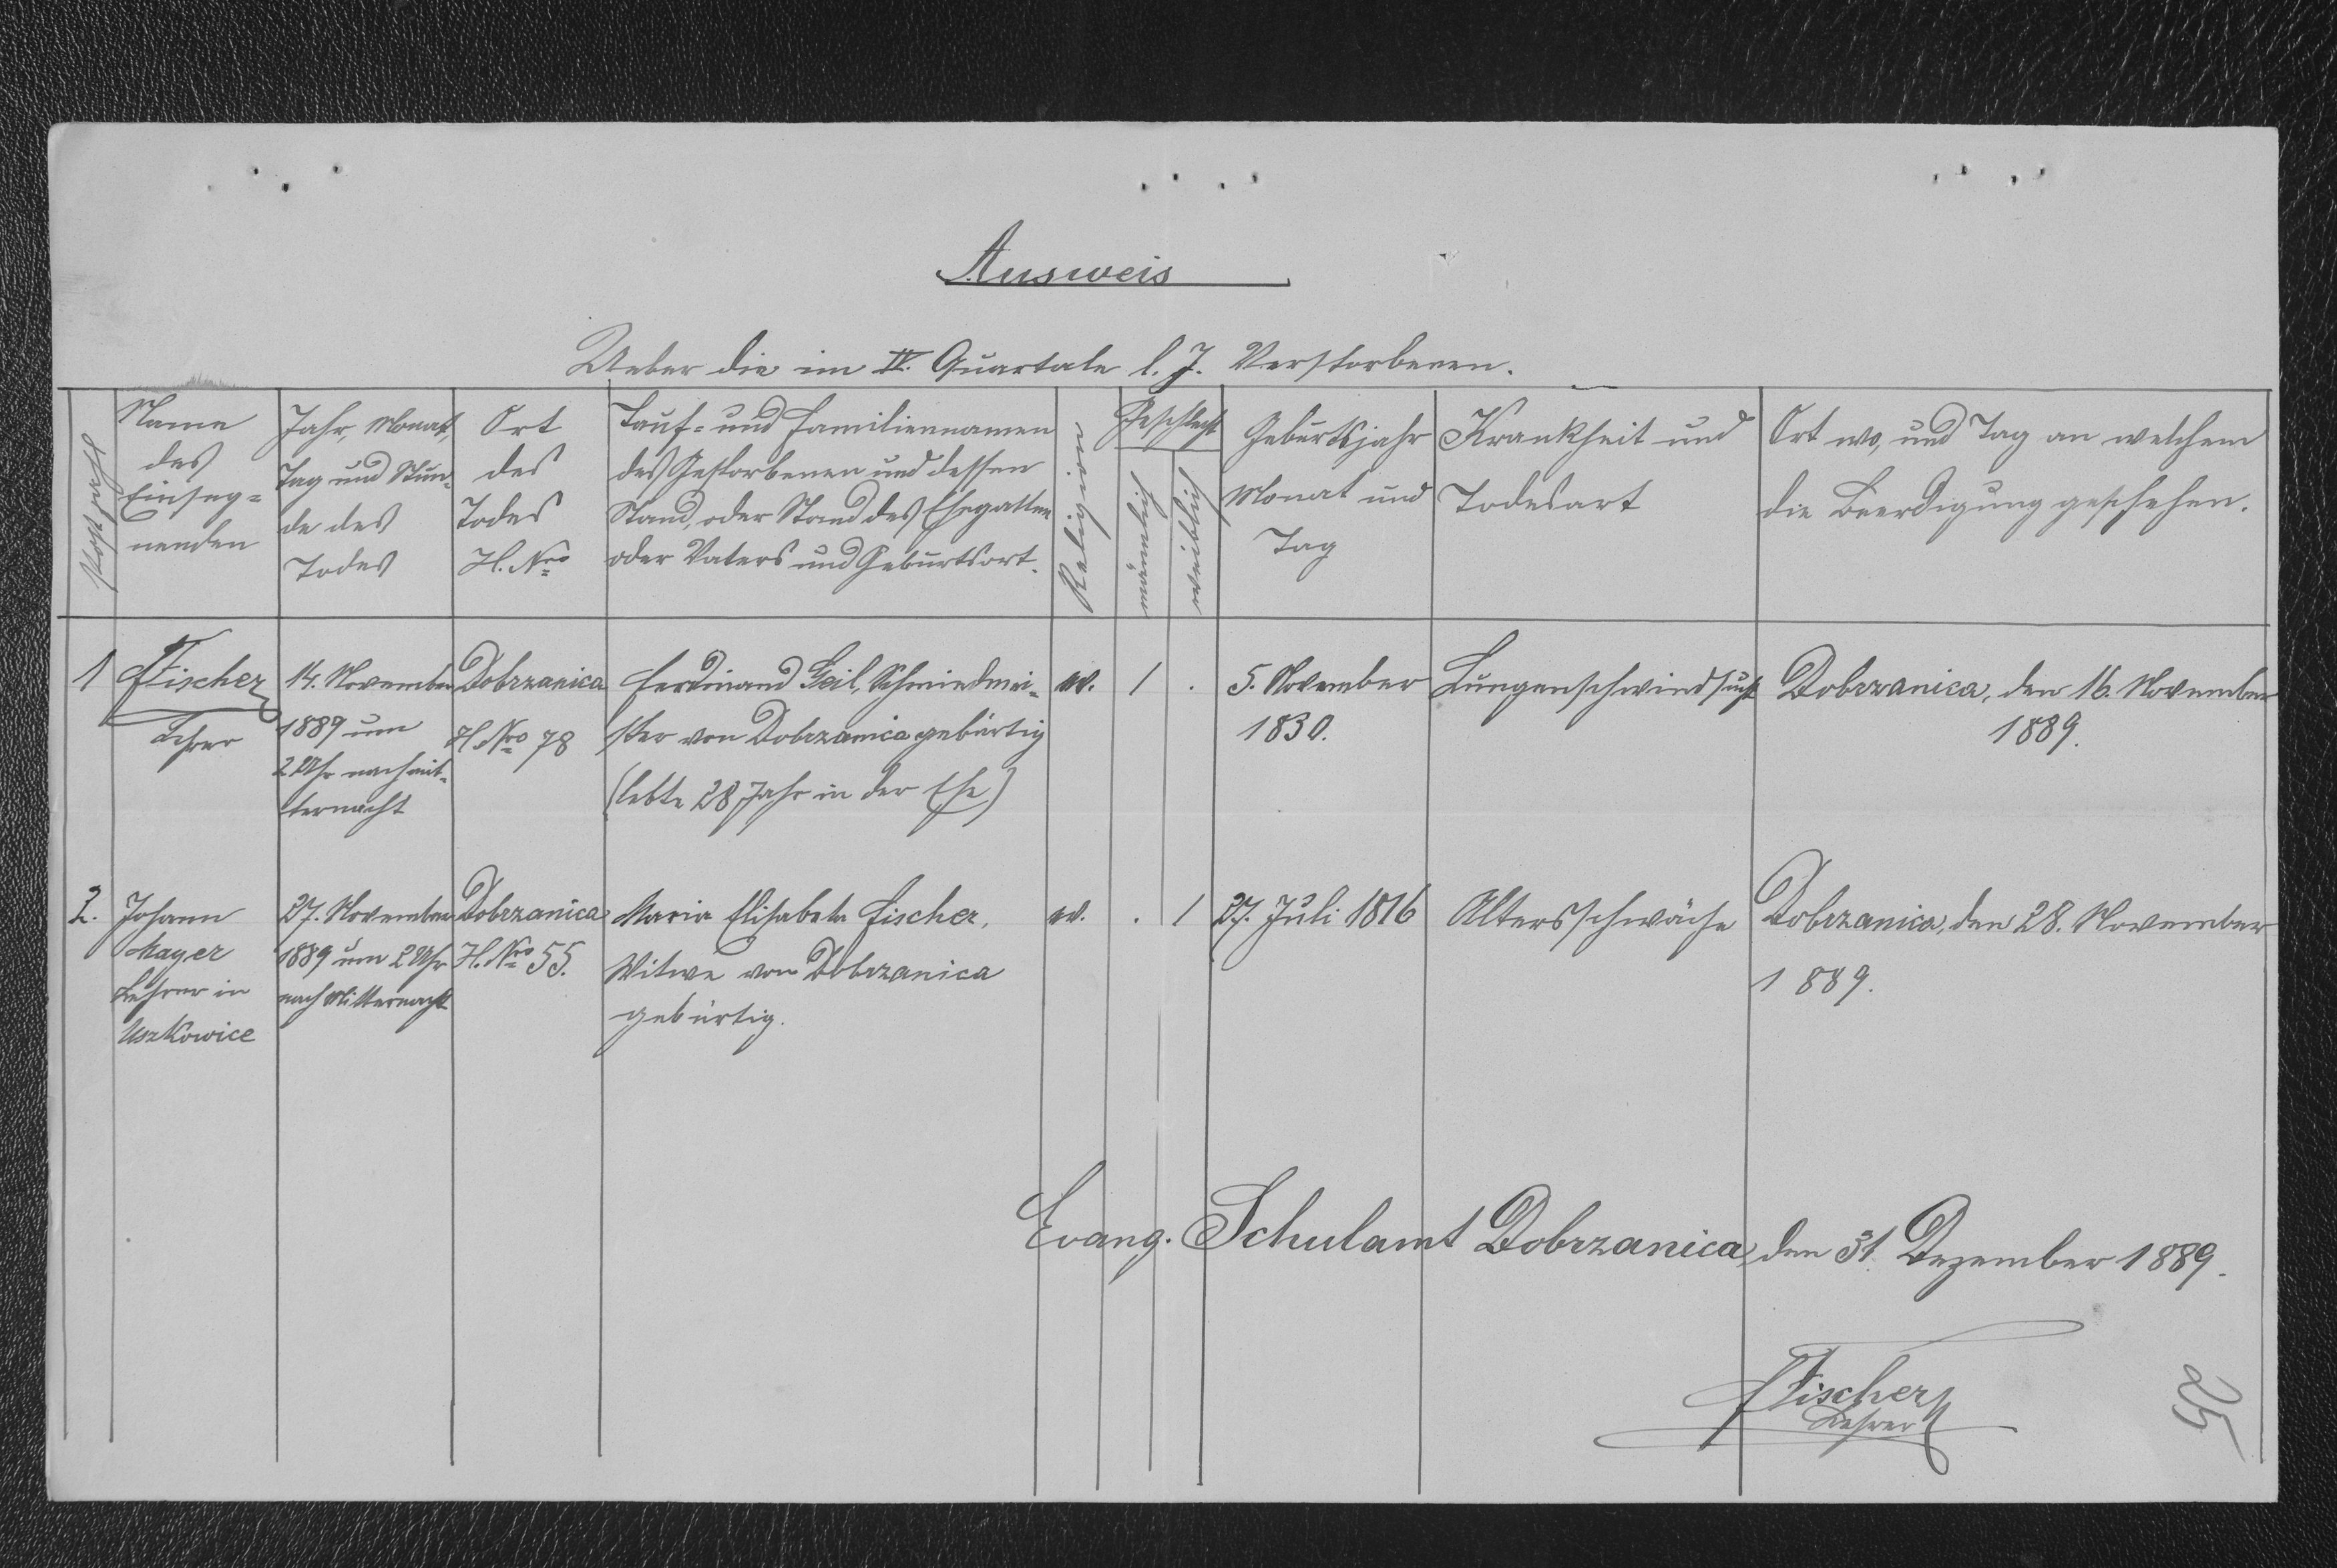 Ausweis
Ueber die im IV. Quartale l. J. Verstorbenen.
Postzahl
Name
des
Einseg-
nenden
Jahr, Monat,
Tag und Stun-
de des
Todes
Ort
des
Todes
H. Nro
Tauf- und Familiennamen
des Gestorbenen und dessen
Stand, oder Stand des Ehegatten
oder Vaters und Geburtsort.
Religion
Geschlecht
männlich
weiblich
Geburtsjahr
Monat und
Tag
Krankheit und
Todesart
Ort wo, und Tag an welchem
die Beerdigung geschehen.
1
Fischer
Lehrer
14. November
1889 um
2 Uhr nachmit-
ternacht
Dobrzanica
H. Nro 78
Ferdinand Geil, Schmiedmei-
ster von Dobrzanica gebürtig
(lebte 28 Jahr in der Ehe)
ev.
1
.
5. November
1830.
Lungenschwindsucht
Dobrzanica, den 16. November
1889.
2.
Johann
Mayer
Lehrer in
Uszkowice
27. November
1889 um 2 Uhr
nach Mitternacht
Dobrzanica
H. Nro 55.
Maria Elisabeta Fischer,
Witwe von Dobrzanica
gebürtig.
ev.
.
1
27. Juli 1816
Altersschwäche
Dobrzanica, den 28. November
1889.
Evang. Schulamt Dobrzanica, den 31. Dezember 1889.
Fischer
Lehrer
25